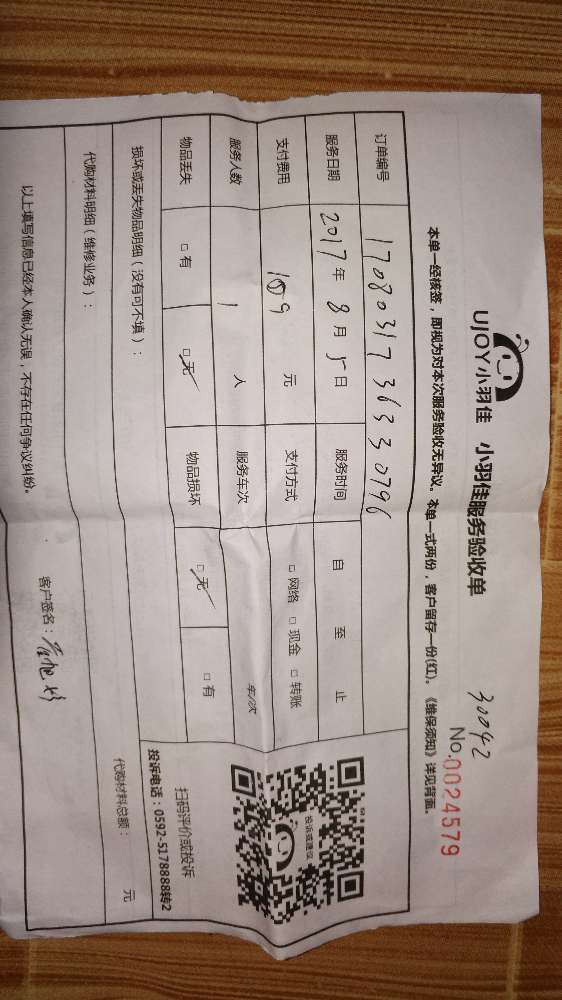 UJOY小羽佳 小羽佳服务验收单
30042
No.0024579
本单一经核签，即视为对本次服务验收无异议。本单一式两份，客户留存一份(红)。《维保须知》详见背面。
订单编号 1708031736330796
服务日期 2017年8月5日 服务时间 自 至 止
支付费用 109元 支付方式 □网络 □现金 □转账
服务人数 1人 服务车次 车/次
物品丢失 □有 □无 物品损坏 □无 □有
投诉或建议
扫码评价或投诉
投诉电话：0592-5178888转2
损坏或丢失物品明细（没有可不填）：
代购材料明细（维修业务）： 代购材料总额： 元
以上填写信息已经本人确认无误，不存在任何争议纠纷。 客户签名：